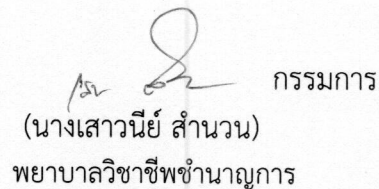 กรรมการ
(นางเสาวนีย์ สำนวน)
พยาบาลวิชาชีพชำนาญการ